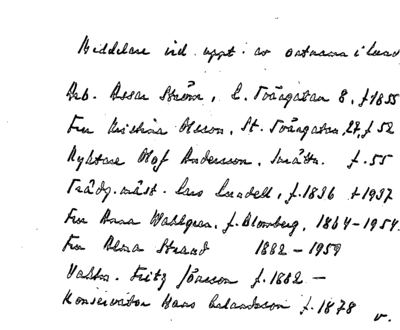 Meddelare vid uppt. av ortnamn i Lund
Arb. Assar Ström, L. Tvärgatan 8, f 1855
Fru Kristina Olsson, St. Tvärgatan 27, f 52
Ryktare Olof Andersson, f. 55
Trädg. mäst. Lars Lundell, f. 1836 † 1937
Fru Anna Wahlgren, f. Blomberg, 1864-1954.
Fru Alma Strand 1882-1959
Vaktm. Fritz Jönsson f. 1882 -
Konservator Hans f. 1878 v.